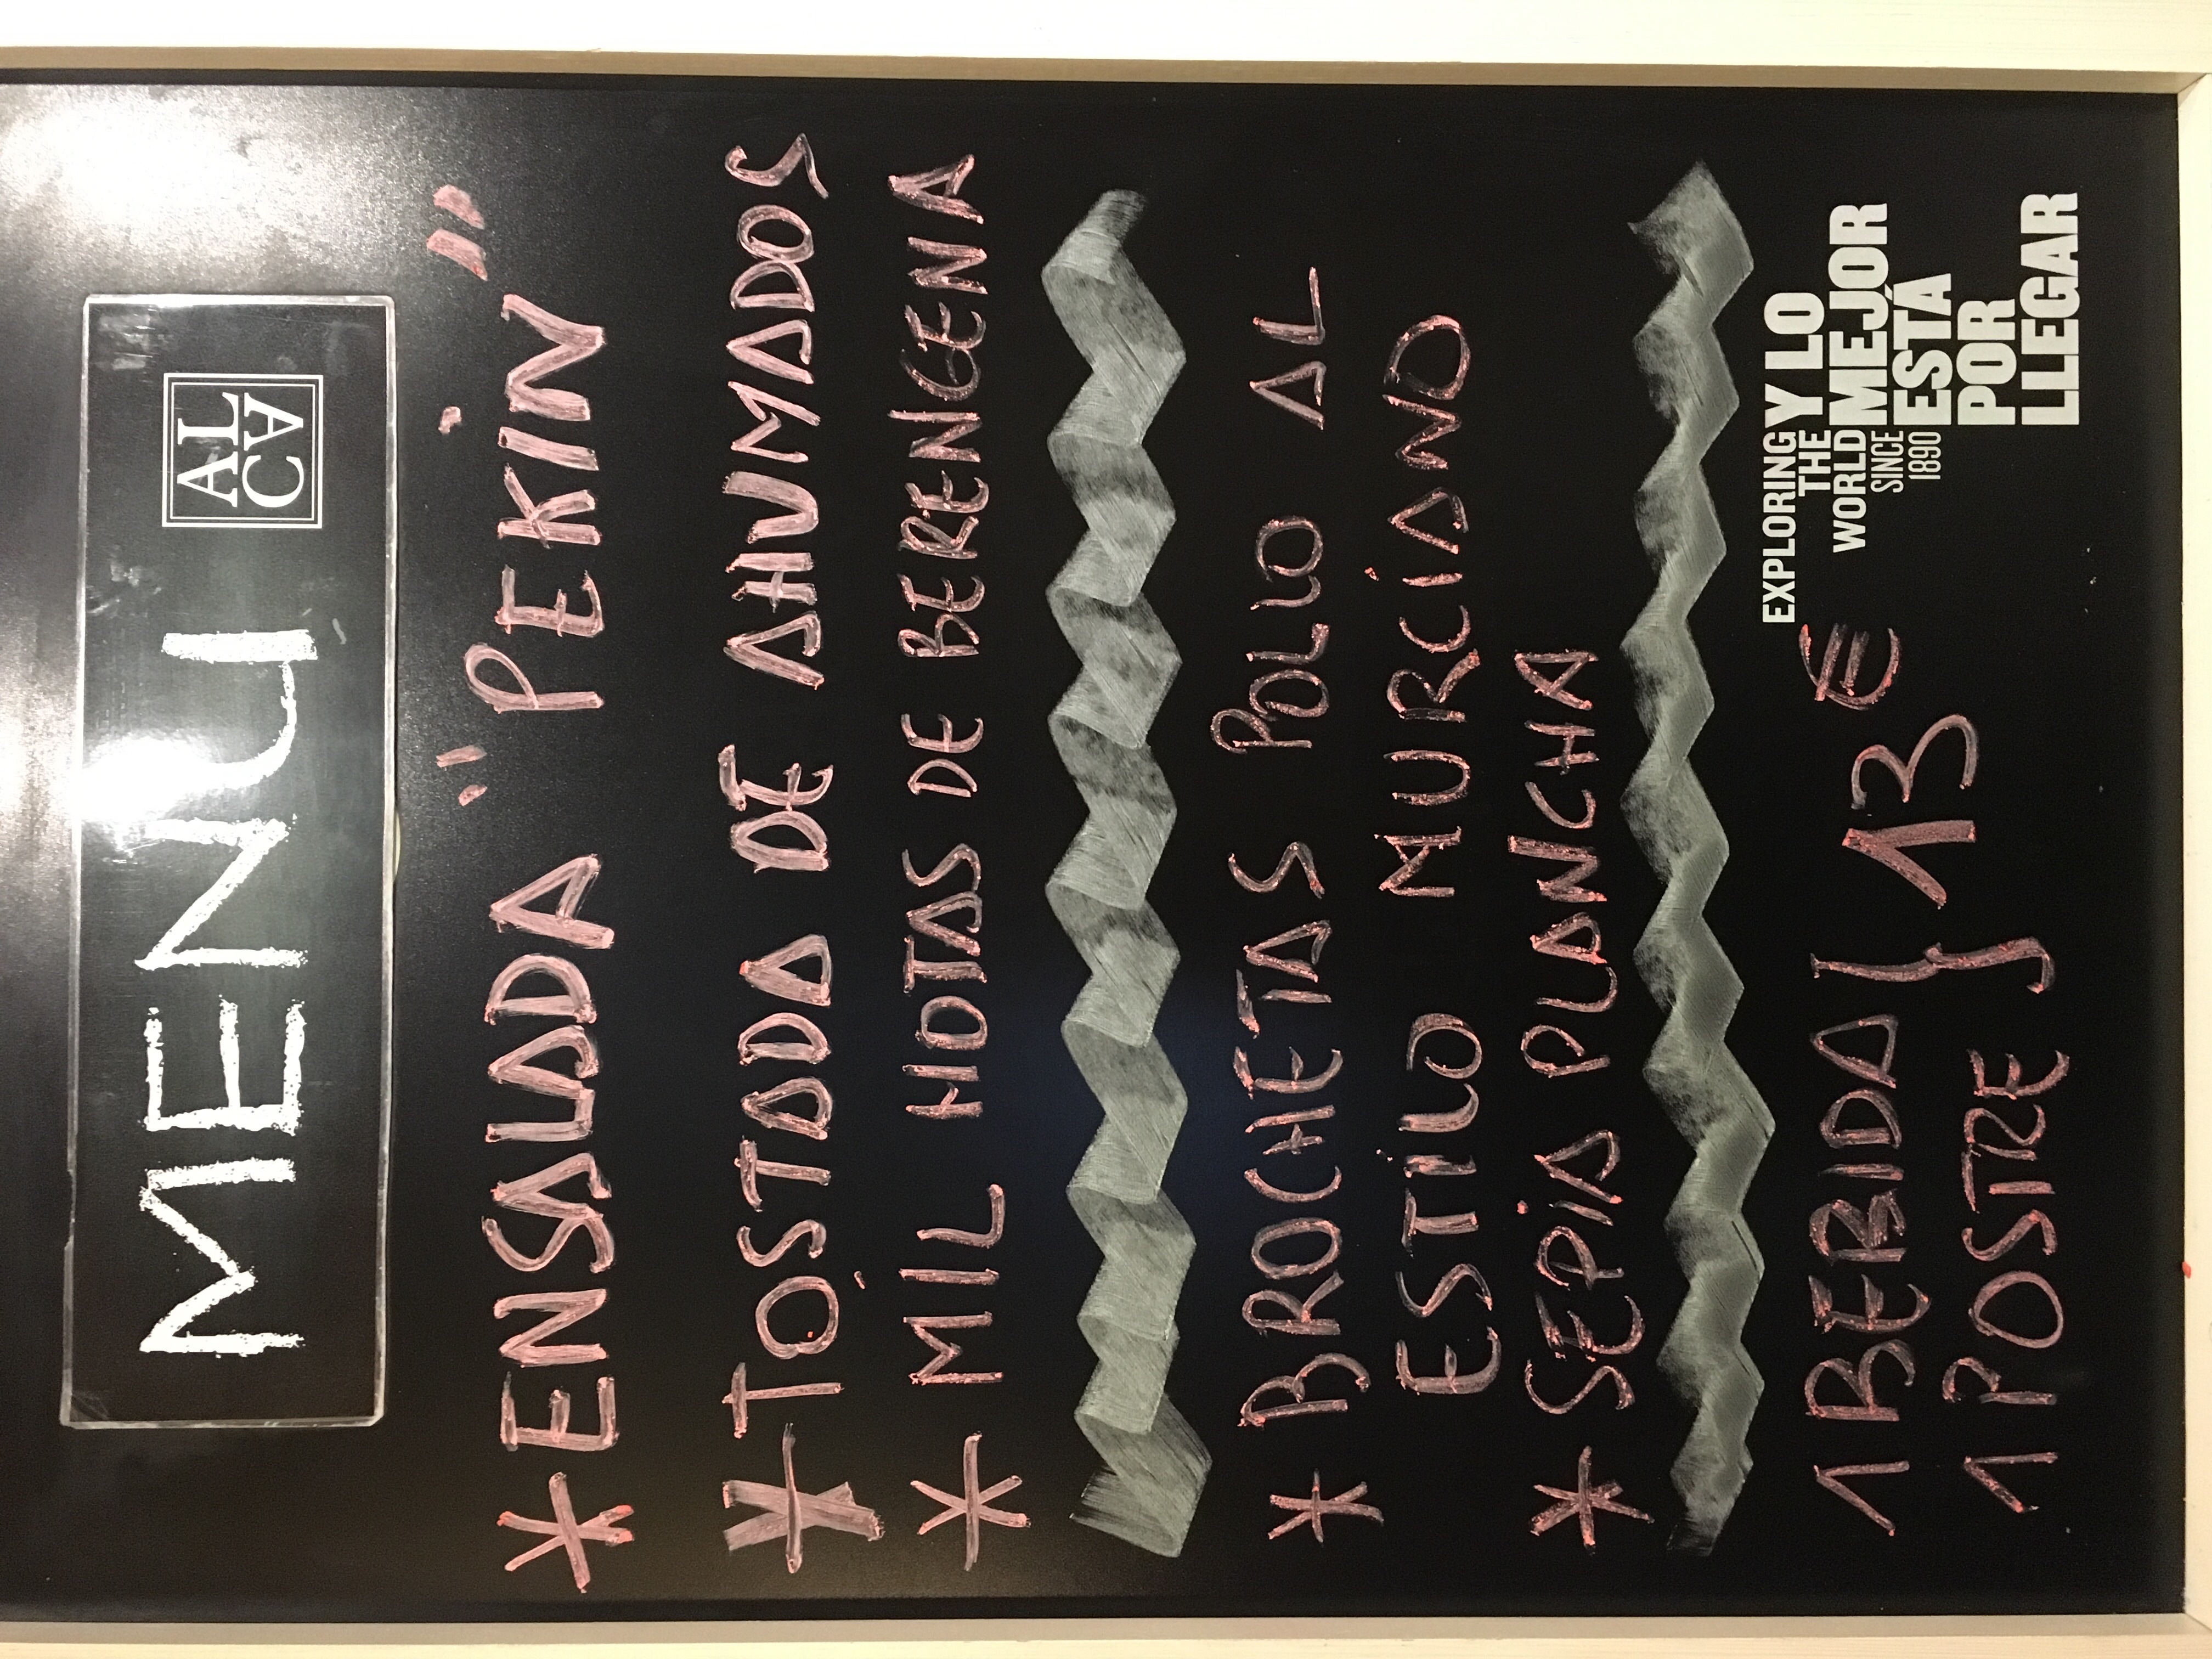 MENU
AL
CA
* ENSALADA "PEKÍN"
* TOSTADA DE AHUMADOS
* MIL HOTAS DE BERENGENA
* BROCHETAS POLLO AL
ESTILO MURCIANO
* SEPIA PLANCHA
1 BEBIDA } 13 €
1 POSTRE
EXPLORING Y LO
THE MEJOR
WORLD ESTÁ
SINCE POR
1890 LLEGAR